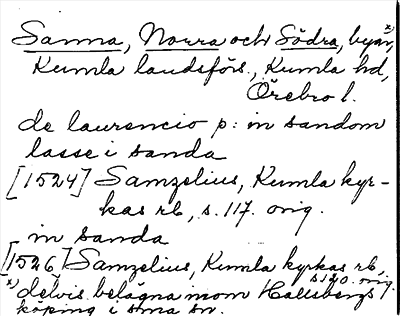 Sanna, Norra och Södra, byar, x)
Kumla landsförs., Kumla hd,
Örebro l.
de laurencio p: in sandom
lasse i sanda
[1524] Samzelius, Kumla kyr-
kas rb, s. 117. orig.
in sanda
[1526] Samzelius, Kumla kyrkas rb,
s 120. orig.
x) delvis belägna inom Hallsbergs
köping i sma sn.